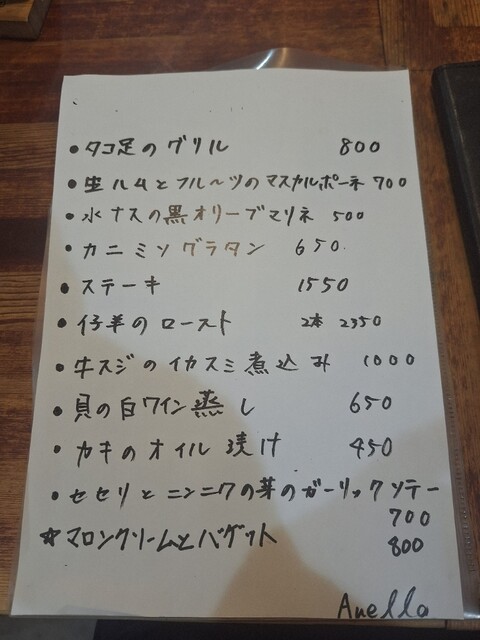 • タコ足のグリル 800
• 生ハムとフルーツのマスカルポーネ 700
• 水ナスの黒オリーブマリネ 500
• カニミソグラタン 650
• ステーキ 1550
• 仔羊のロースト 2本 2350
• 牛スジのイカスミ煮込み 1000
• 貝の白ワイン蒸し 650
• カキのオイル漬け 450
• セセリとニンニクの芽のガーリックソテー
700
☆マロンクリームとバゲット 800
Anella